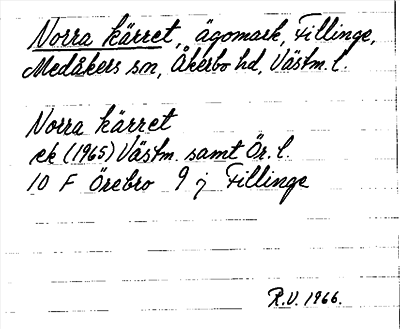 Norra kärret, ägomark, Fillinge,
Medåkers sn, Åkerbo hd, Västm. l.
Norra kärret
ek (1965) Västm. samt Ör. l.
10 F Örebro 9 j Fillinge
R.V. 1966.